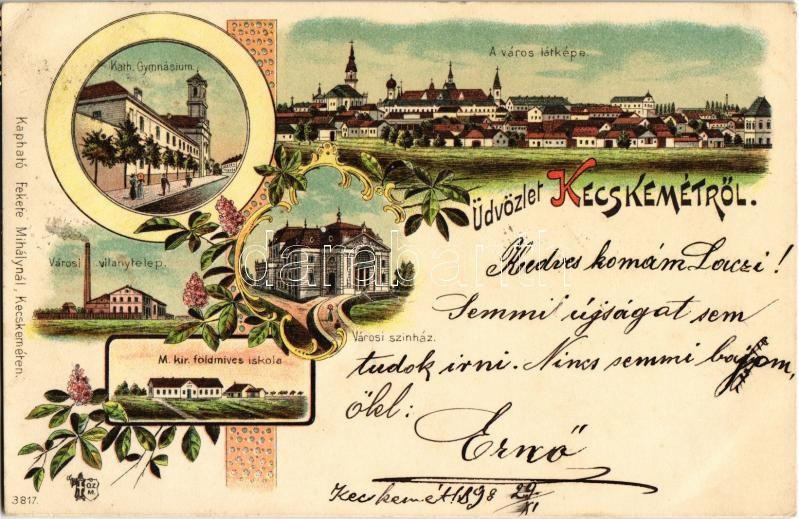 Kath. Gymnásium.
A város látképe.
Üdvözlet KECSKEMÉTRŐL.
Városi villanytelep.
Városi szinház.
M. kir. földmives iskola
Kapható Fekete Mihálynál, Kecskeméten.
Kedves komám Laczi!
Semmi újságot sem
tudok irni. Nincs semmi bajom,
ölel:
Ernő
Kecskemét 1898 29/XI
3817.
darabanth